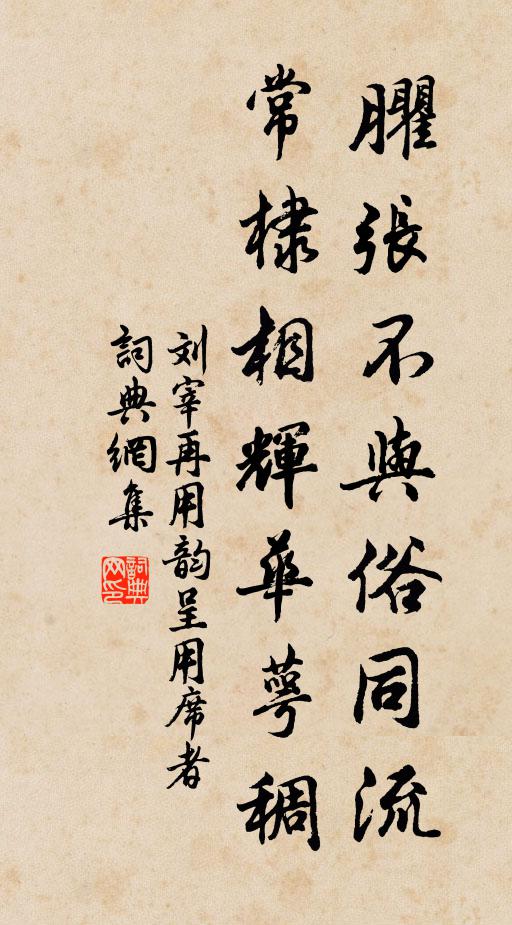 臞張不與俗同流
常棣相輝華萼稠
刘宰再用韵呈用席者
詞典網集
詞典网印